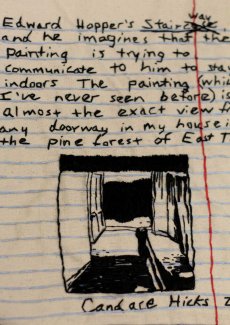 Edward Hopper's Stairway
and he imagines that the
painting is trying to
communicate to him to stay
indoors The painting (whic
I've never seen before) is
almost the exact view f
any doorway in my house i
the pine forest of East T
Candace Hicks 2